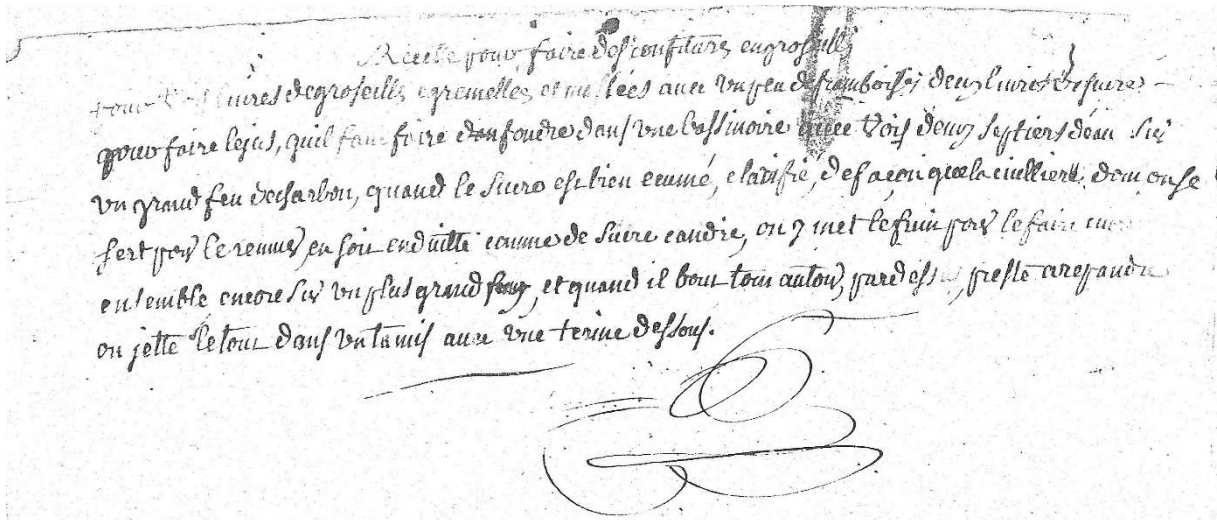 Recette pour faire des confitures en groseilles
livres de groseilles egrenelles et mellées avec un peu de framboises deux livres de sucre
pour faire le jus, quil faut faire fondre dans une bassinoire avec trois demy septiers déau sur
un grand feu de charbon, quand le sucre est bien ecumé, clarifié, de façon que la cuilliere dont on se
sert pour le remuer en soit enduitte comme de sucre candie, on y met le fruit pour le faire
ensemble encore sur un plus grand feu, et quand il bout tout autour, par dessus, preste a repandre
on jette le tout dans un tamis avec une terine dessous.